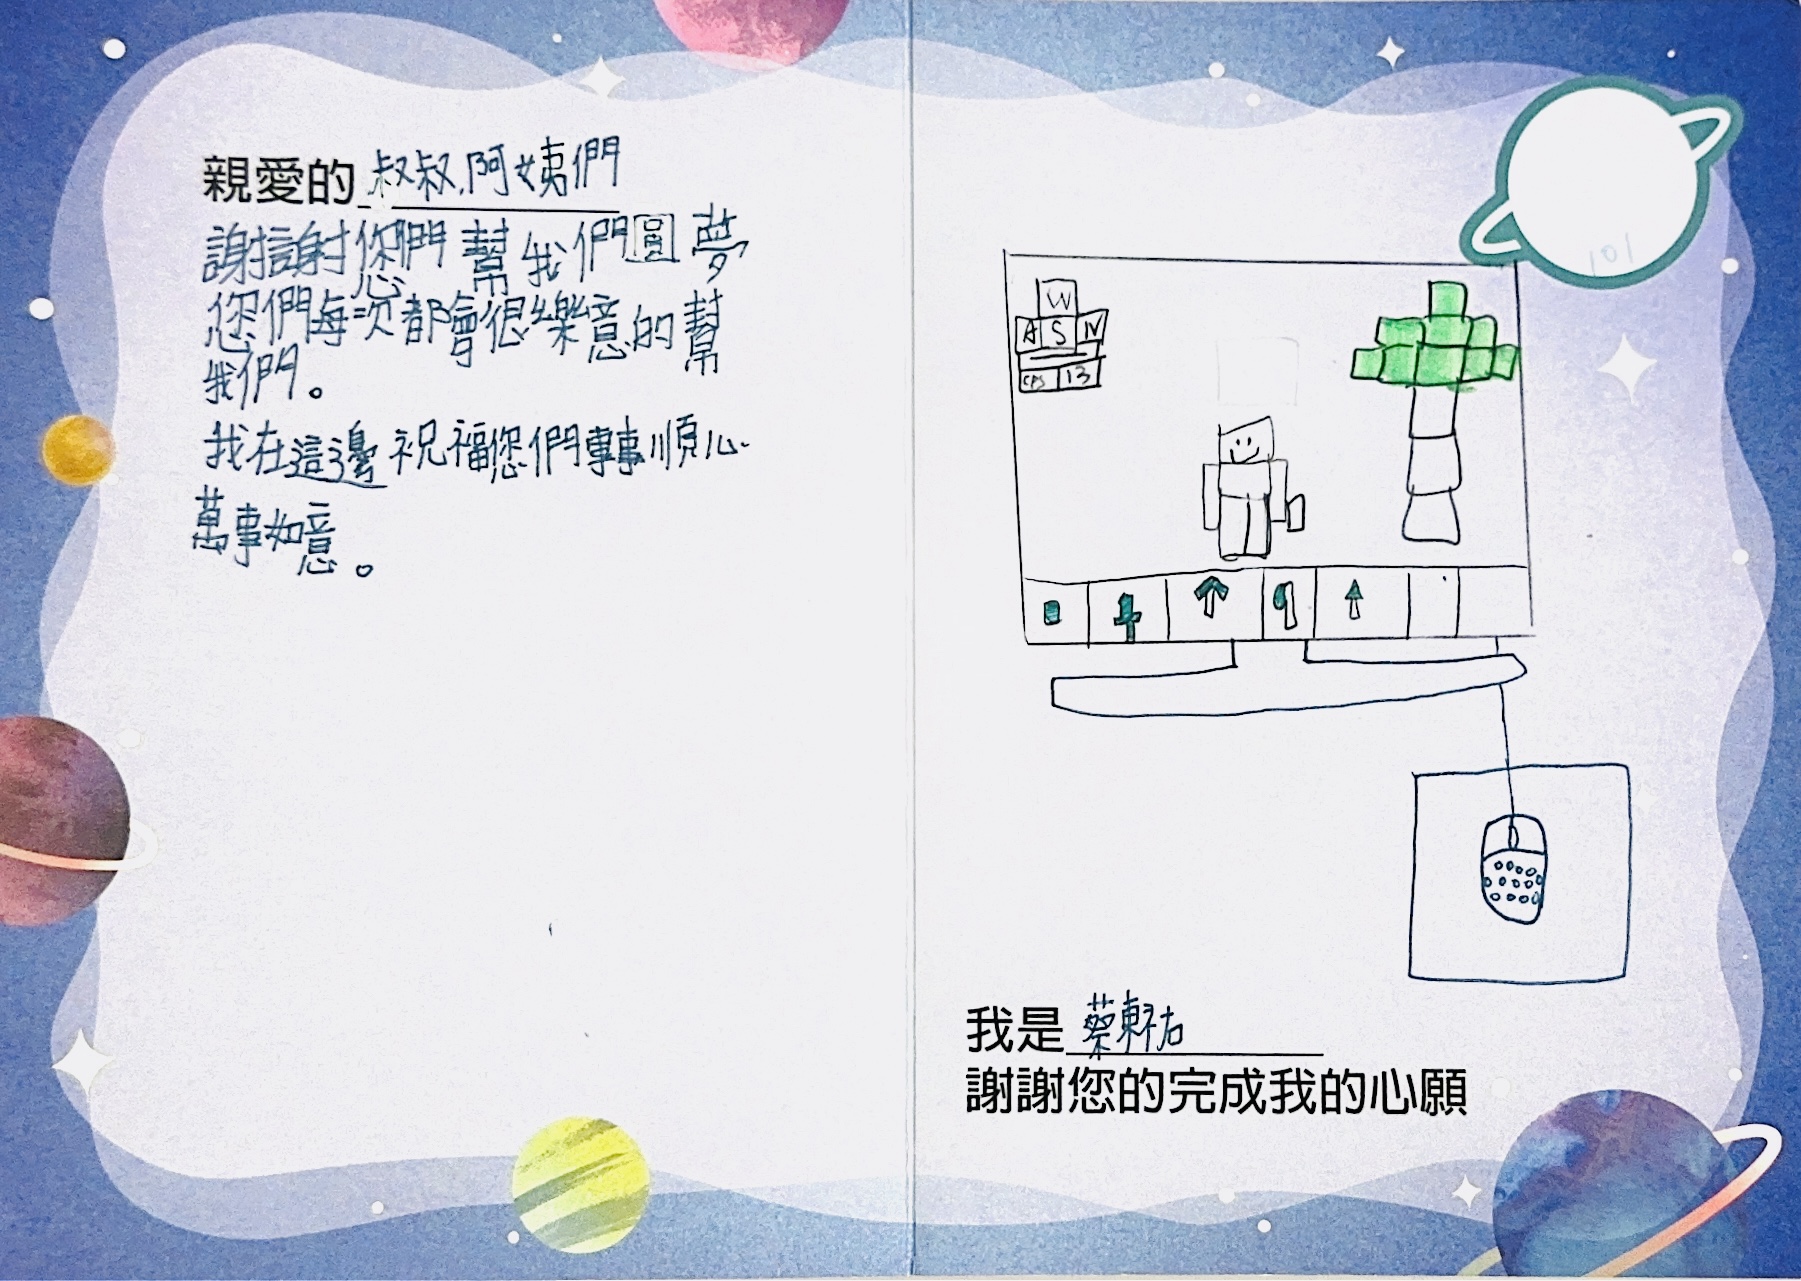 親愛的 叔叔.阿姨們
謝謝您們幫我們圓夢
您們每次都會很樂意的幫
我們。
我在這邊祝福您們事事順心
萬事如意。
101
W
A S
CPS 13
我是 蔡東祐
謝謝您的完成我的心願